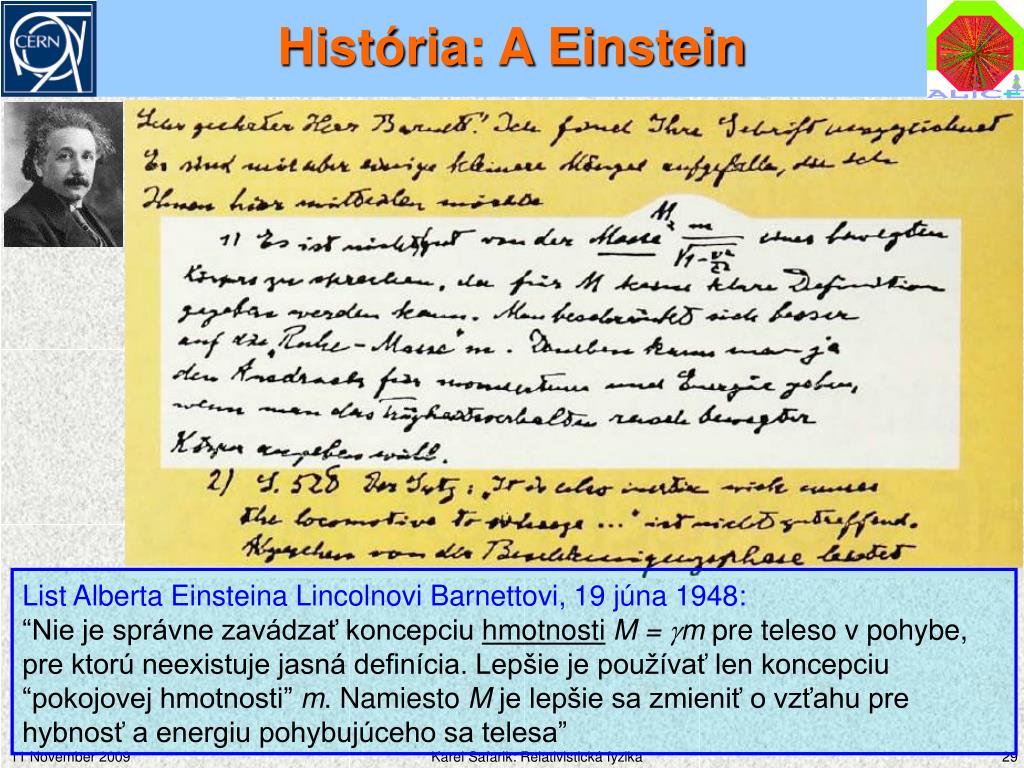 CERN
História: A Einstein
ALICE
Sehr geehrter Herr Barnett! Ich fand Ihre Schrift ausgezeichnet
Es sind mir aber einige kleinere Mängel aufgefallen, die ich
Ihnen hier mitteilen möchte
1) Es ist nicht gut von der Masse M = m/√(1-v²/c²) eines bewegten
Körpers zu sprechen, da für M keine klare Definition
gegeben werden kann. Man beschränkt sich besser
auf die „Ruhe-Masse" m. Daneben kann man ja
den Ausdruck für momentum und Energie geben,
wenn man das Trägheitsverhalten rasch bewegter
Körper angeben will.
2) S. 528 Der Satz: „It is also inertia which causes
the locomotive to wheeze ..." ist nicht zutreffend.
Abgesehen von der Beschleunigungsphase leistet
List Alberta Einsteina Lincolnovi Barnettovi, 19 júna 1948:
“Nie je správne zavádzať koncepciu hmotnosti M = γm pre teleso v pohybe,
pre ktorú neexistuje jasná definícia. Lepšie je používať len koncepciu
“pokojovej hmotnosti” m. Namiesto M je lepšie sa zmieniť o vzťahu pre
hybnosť a energiu pohybujúceho sa telesa”
11 November 2009 Karel Safarik: Relativistická fyzika 29